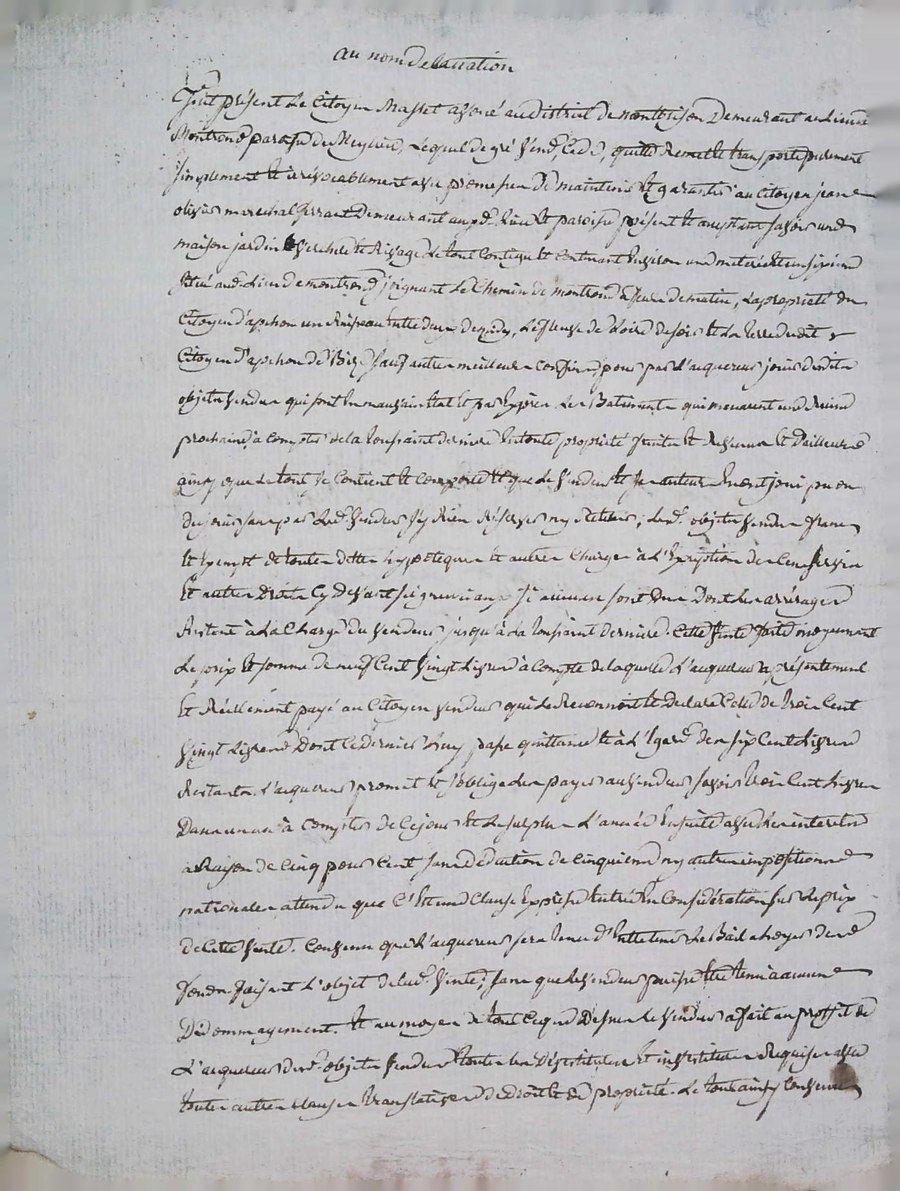 au nom de la nation
Fut présent le Citoyen Massot avoué au district de montbrison Demeurant au Lieu de
Montrond paroisse de Meylieu, Lequel de gré Vend, Cede, quitte Remet et transporte purement
simplement et irrévocablement avec promesse de maintenir et garantir au Citoyen jean
marechal ferrant Demeurant aud. Lieu et paroisse présent et acceptant savoir une
maison jardin et Rivage Le tout Contigu et Contenant Environ une meterée et un sixieme
situé aud. Lieu de montrond joignant Le Chemin de montrond à de matin, La propriété du
Citoyen d'apchon un Ruisseau Entre deux de midy, Le fleuve de Loire de soir et La terre dudit
Citoyen d'apchon de Bize sauf autre meilleurs Confins, pour par L'acquereur jouir desdits
objets Vendus qui sont En mauvais Etat et par Exprès Les Batiments qui menacent une Ruine
prochaine, à Compter de la toussaint derniere En toute propriété fruits et Revenus Et D'ailleurs
ainsy que Le tout se Contient Et Comporte Et que Le Vendeur Et ses auteurs En ont joui pu ou
du jouir sans par Led. Vendeur s'y Rien Réserver ny Retenir, Lesd. objets Vendus francs
Et Exempt de toutes dettes hypoteques Et autres Charges à L'Exception des Cens servis
Et autres Droits Cy devant seigneuriaux si aucuns sont dus Dont Les arrérages
Restent à La Charge du Vendeur jusqu'à La toussaint derniere. Cette Vente faite moyennant
Le prix Et somme de neuf Cent Vingt Livres à Compte de laquelle L'acquereur a présentement
Et Réellement payé au Citoyen Vendeur qui Le Reconnoit Et declare Celle de trois Cent
Vingt Livres Dont Ce dernier Luy passe quittance Et à L'Egard des six Cent Livres
Restants L'acquereur promet Et s'oblige Les payer au Vendeur savoir trois Cent Livres
Dans un an à Compter de Ce jour Et Le surplus L'année Ensuite avec Les interets
à Raison de Cinq pour Cent sans déduction de Cinquieme ny autres impositions
nationales attendu que C'Est une Clause Expresse Entrée En Considération sur Le prix
de Cette Vente. Convenu que L'acquereur sera tenu d'Entretenir Le Bail à Loyer des
fonds faisant L'objet de lad. Vente, sans que Le Vendeur puisse Etre tenu à aucun
Dédommagement. Et au moyen de tout Ce que Dessus Le Vendeur a fait au proffit de
L'acquereur desd. objets Vendus toutes Les Dévestitures Et investitures Requises avec
toutes autres Clauses translatives de Droit Et de propriété. Le tout ainsy Convenu